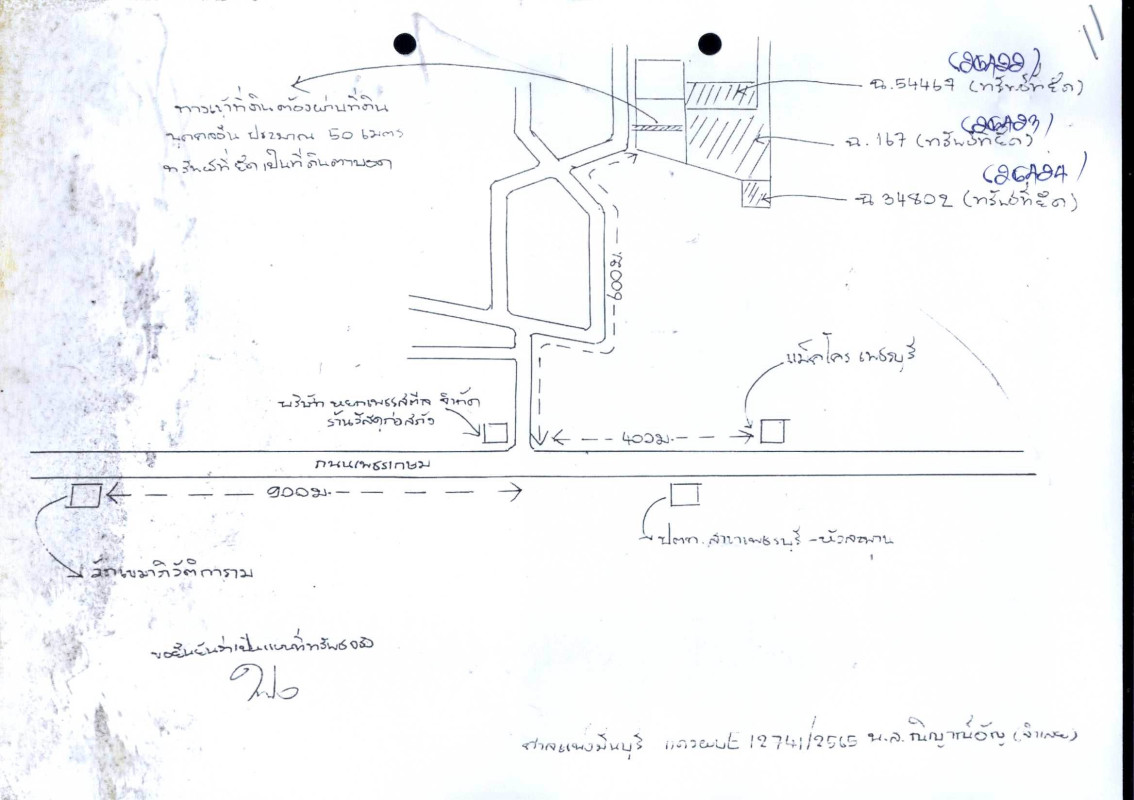 11
ทางเข้าที่ดินต้องผ่านที่ดิน
บุคคลอื่น ประมาณ 50 เมตร
ทรัพย์ที่ยึดเป็นที่ดินตาบอด
ฉ.54467 (ทรัพย์ที่ยึด)
ฉ.167 (ทรัพย์ที่ยึด)
ฉ 34802 (ทรัพย์ที่ยึด)
600ม.
แม็คโคร เพชรบุรี
บริษัท หยกเพชรสตีล จำกัด
ร้านวัสดุก่อสร้าง
400ม.
ถนนเพชรเกษม
900ม.
ปตท. สาขาเพชรบุรี - หัวสะพาน
วัดเขมาภิวัติการาม
ขอยืนยันว่าเป็นแผนที่ทรัพย์จริง
ศาลแพ่งมีนบุรี แดง ผบE 12741/2565 น.ส. (จำเลย)